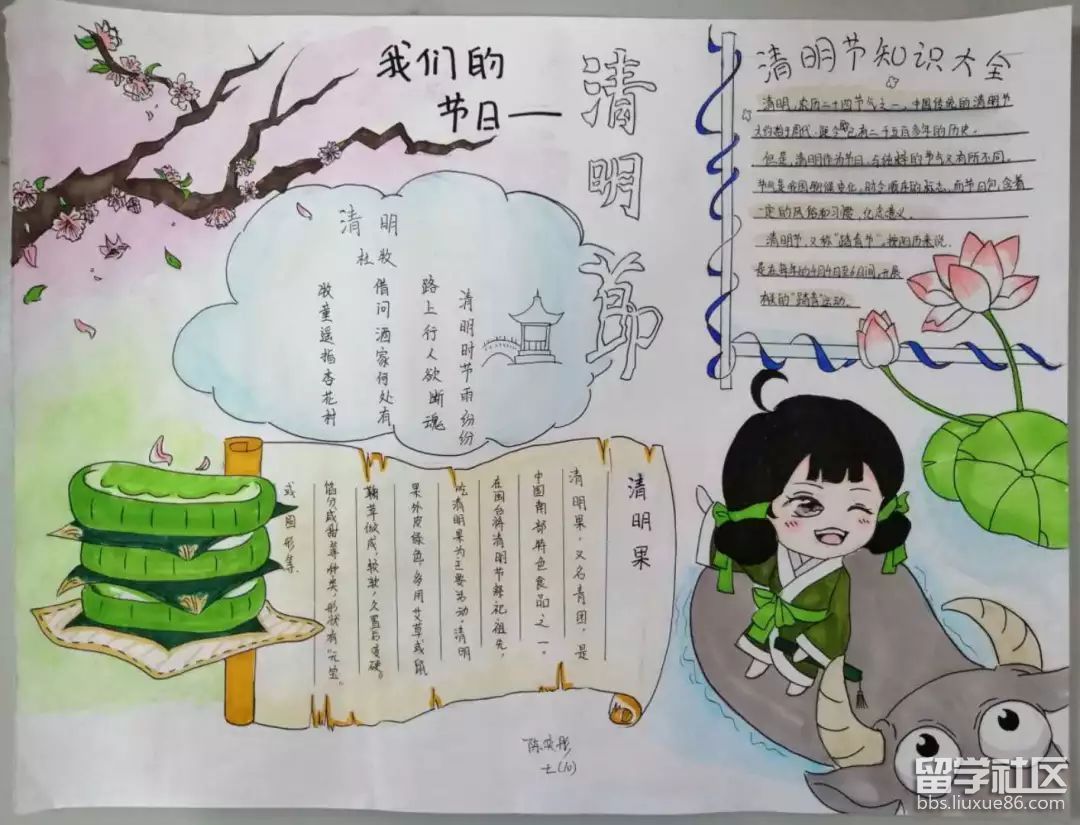 我们的
节日——
清明节
清明节知识大全
清明,农历二十四节气之一,中国传统的清明节
大约始于周代,距今已有二千五百多年的历史。
但是,清明作为节日,与纯粹的节气又有所不同。
节气是我国物候变化、时令顺序的标志,而节日则含着
一定的风俗和习惯,纪念意义。
清明节,又称"踏青节",按阳历来说,
是在每年的4月4日至6日间,开展
的"踏青"运动。
清明
杜牧
清明时节雨纷纷
路上行人欲断魂
借问酒家何处有
牧童遥指杏花村
清明果
清明果,又名青团,是
中国南部特色食品之一。
在闽台将清明节祭祀祖先,
吃清明果为主要活动,清明
果外皮绿色,多用艾草或鼠
鞠草做成,较软,久置后变硬。
馅分咸甜等种类,形状有"元宝"
或圆形等.
七(10)
留学社区
bbs.liuxue86.com